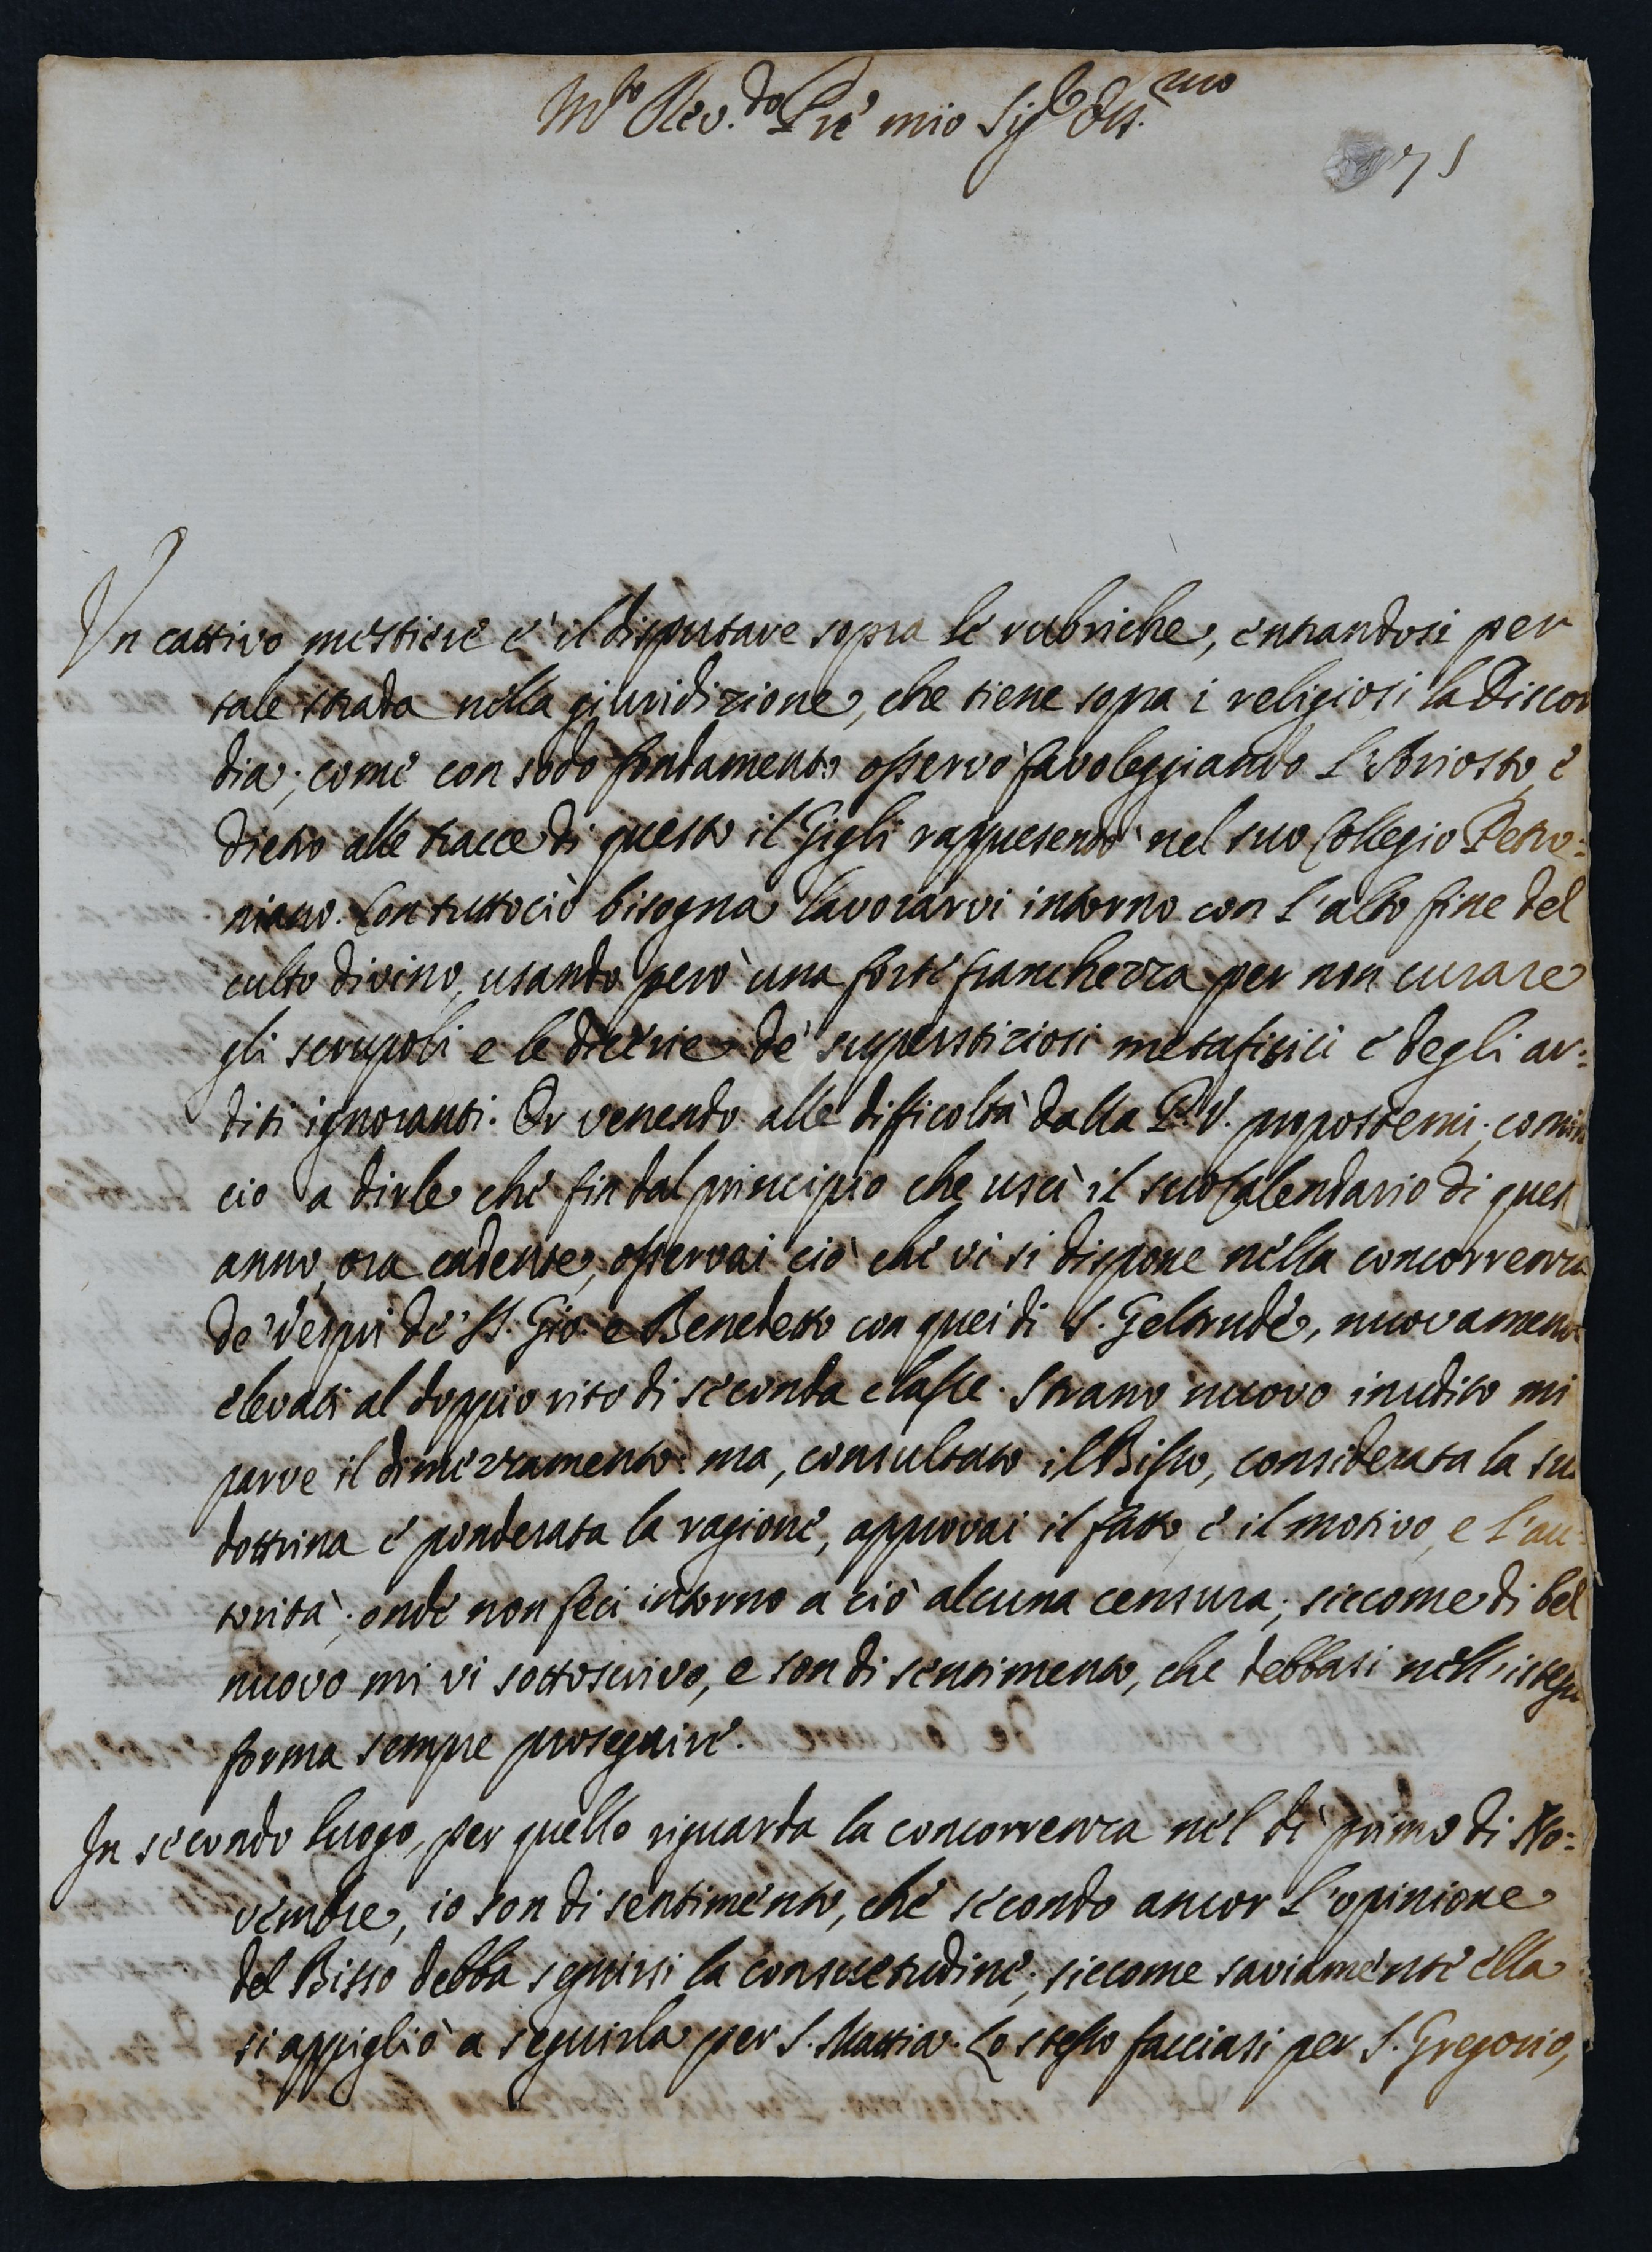 M.to Rev.do Prē mio Sig.r Oss.mo
75
Un cattivo mestiere è il disputare sopra le rubriche, entrandosi per
tale strada nella giuridizione, che tiene sopra i religiosi la Discor
dia; come con sodo fondamento osservò favoleggiando l'Ariosto, e
dietro alle tracce di questo il Gigli rappresentò nel suo Collegio Petro:
niano. Con tuttociò bisogna lavorarvi intorno con l'alto fine del
culto divino, usando però una forte franchezza per non curare
gli scrupoli e le dicerie de' superstiziosi metafisici e degli ar:
diti ignoranti. Or venendo alle difficoltà dalla P.V. propostemi; comin
cio a dirle che fin dal principio che uscì il suo Calendario di quest
anno, ora cadente, osservai ciò che vi si dispone nella concorrenza
de' Vespri de' SS. Gio: e Benedetto con quei di S. Geltrude, nuovament
elevati al doppio rito di seconda classe. Strano nuovo inudito mi
parve il dimezzamento: ma, consultato il Bisso, considerata la sua
dottrina e ponderata la ragione, approvai il fatto, e il motivo, e l'au:
torità; onde non feci intorno a ciò alcuna censura; siccome di bel
nuovo mi vi sottoscrivo, e son di sentimento, che debbasi nell'istessa
forma sempre proseguire.
In secondo luogo, per quello riguarda la concorrenza nel dì primo di No:
vembre, io son di sentimento, che secondo ancor l'opinione
del Bisso debba seguirsi la consuetudine; siccome saviamente ella
si appigliò a seguirla per S. Mattia. Lo stesso facciasi per S. Gregorio,